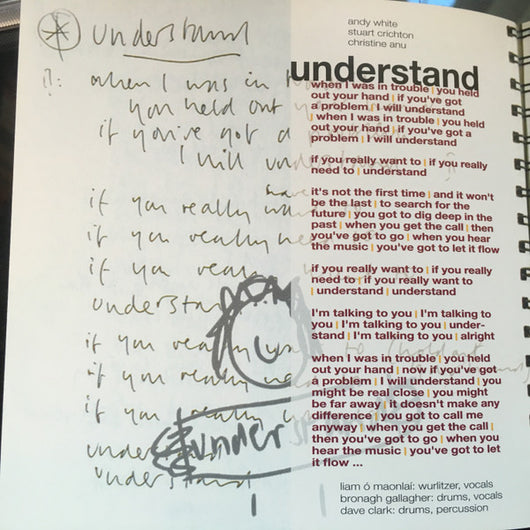 understand
when I was in
you held out
if you've got a
I will understand
if you really
if you really
if you really
understand
if you really
if you really
if you really
understand
understand
under
andy white
stuart crichton
christine anu
understand
when I was in trouble | you held
out your hand | if you've got
a problem | I will understand
| when I was in trouble | you held
out your hand | if you've got a
problem | I will understand
if you really want to | if you really
need to | understand
it's not the first time | and it won't
be the last | to search for the
future | you got to dig deep in the
past | when you get the call | then
you've got to go | when you hear
the music | you've got to let it flow
if you really want to | if you really
need to | if you really want to
| understand | understand
I'm talking to you | I'm talking to
you | I'm talking to you | under-
stand | I'm talking to you | alright
when I was in trouble | you held
out your hand | now if you've got
a problem | I will understand | you
might be real close | you might
be far away | it doesn't make any
difference | you got to call me
anyway | when you get the call |
then you've got to go | when you
hear the music | you've got to let
it flow ...
liam ó maonlaí: wurlitzer, vocals
bronagh gallagher: drums, vocals
dave clark: drums, percussion